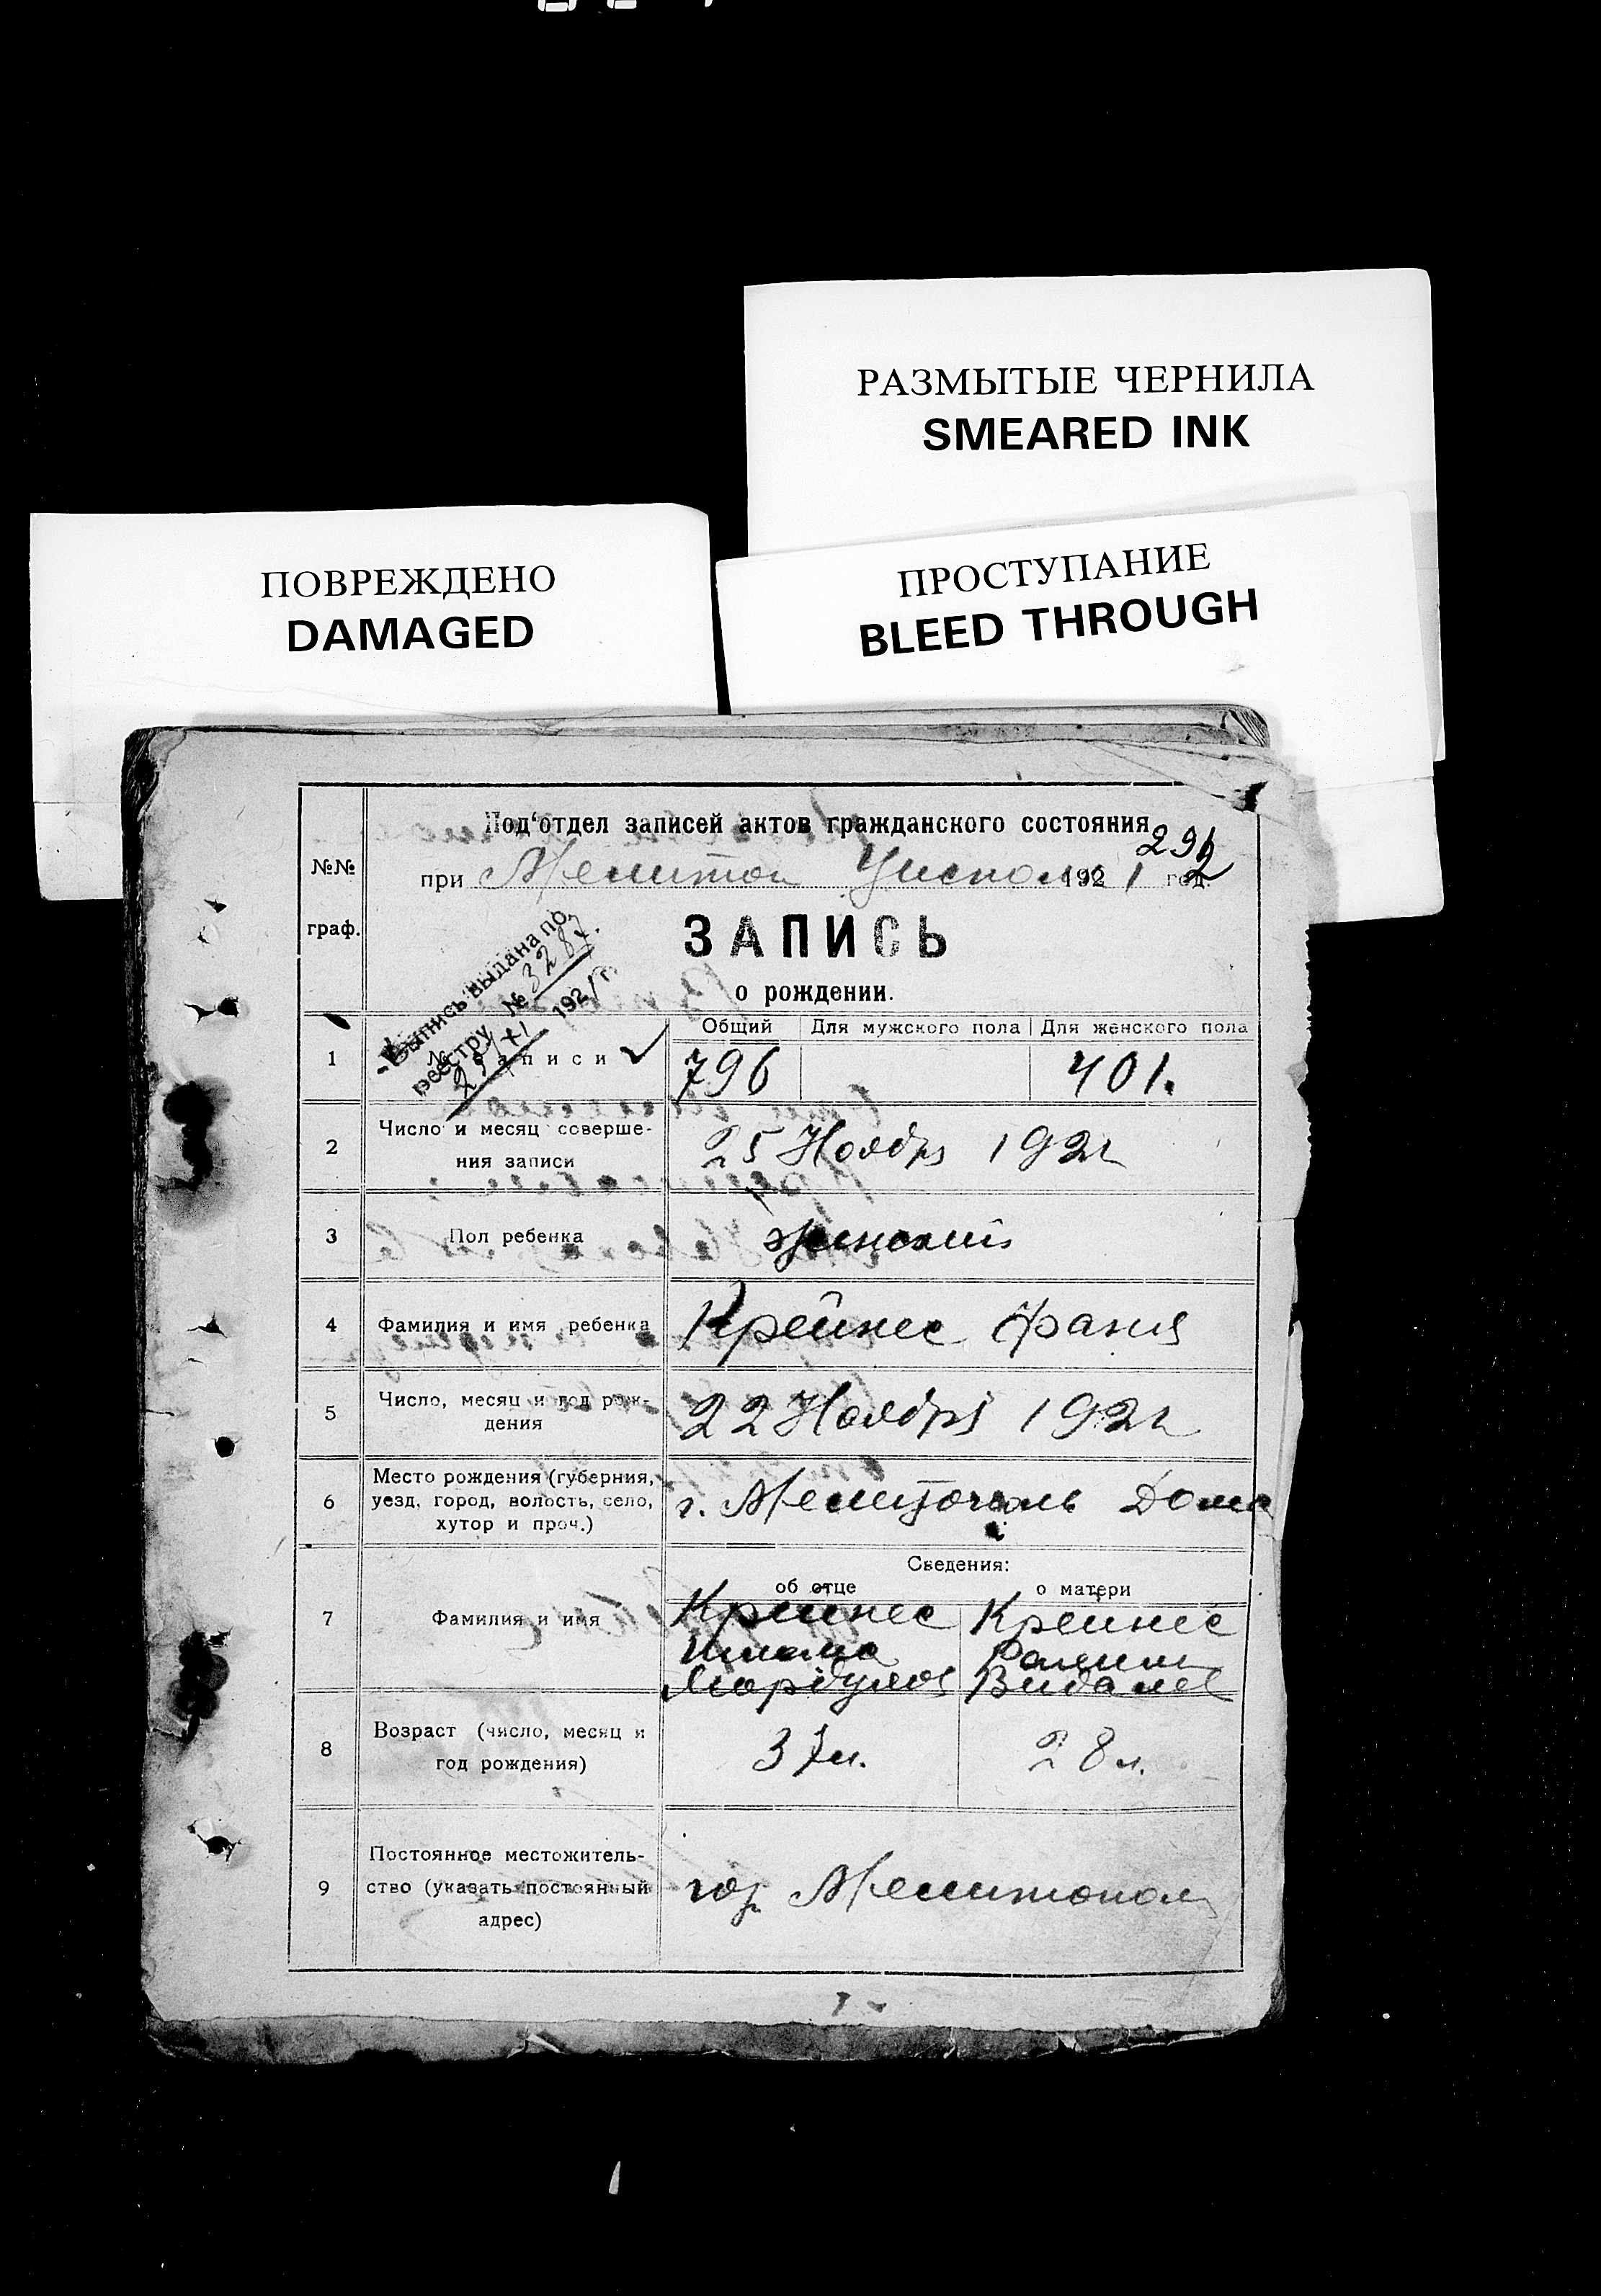 РАЗМЫТЫЕ ЧЕРНИЛА
SMEARED INK
ПОВРЕЖДЕНО
DAMAGED
ПРОСТУПАНИЕ
BLEED THROUGH
Под'отдел записей актов гражданского состояния
292
№№
граф.
при Мелитоп Уисполк 1921 год.
ЗАПИСЬ
о рождении.
Выпись выдана по
реестру № 3287.
25/XI 1921 г.
Общий Для мужского пола Для женского пола
1 № записи 796 401.
2 Число и месяц соверше-
ния записи
25 Ноябр 1921
3 Пол ребенка женский
4 Фамилия и имя ребенка Крейнес Фаня
5 Число, месяц и год рож-
дения
22 Ноября 1921
6 Место рождения (губерния,
уезд, город, волость, село,
хутор и проч.)
г. Мелитополь Дома
Сведения:
об отце о матери
7 Фамилия и имя
Крейнес Крейнес
8 Возраст (число, месяц и
год рождения)
37 л. 28 л.
9 Постоянное местожитель-
ство (указать постоянный
адрес)
гор. Мелитополь